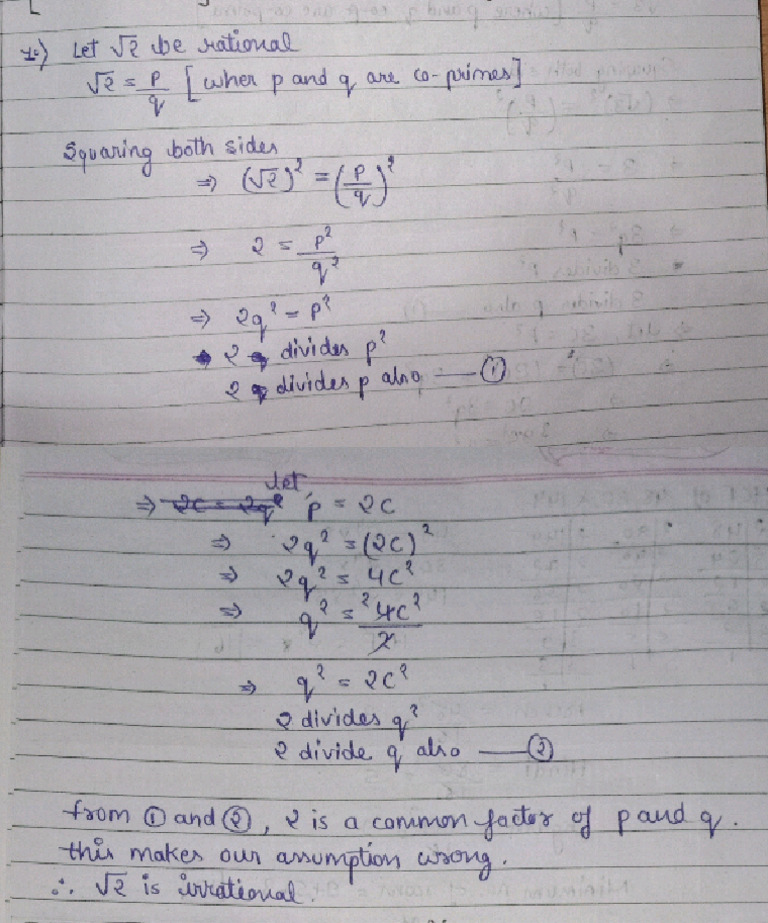 1.) Let √2 be rational
√2 = p/q [wher p and q are co-primes]
Squaring both sides
⇒ (√2)² = (p/q)²
⇒ 2 = p²/q²
⇒ 2q² = p²
2 divides p²
2 divides p also — ①
⇒ let p = 2c
⇒ 2q² = (2c)²
⇒ 2q² = 4c²
⇒ q² = ²4c²/2
⇒ q² = 2c²
2 divides q²
2 divide q also — ②
from ① and ②, 2 is a common factor of p and q.
this makes our assumption wrong.
∴ √2 is irrational.